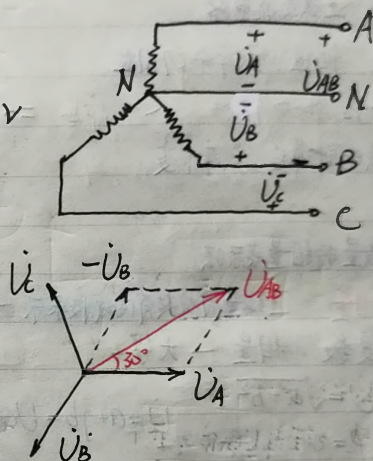 A
+ +
U̇A U̇AB
N - N
V -
U̇B
+ - B
U̇C
+ C
U̇C -U̇B U̇AB
30°
U̇A
U̇B